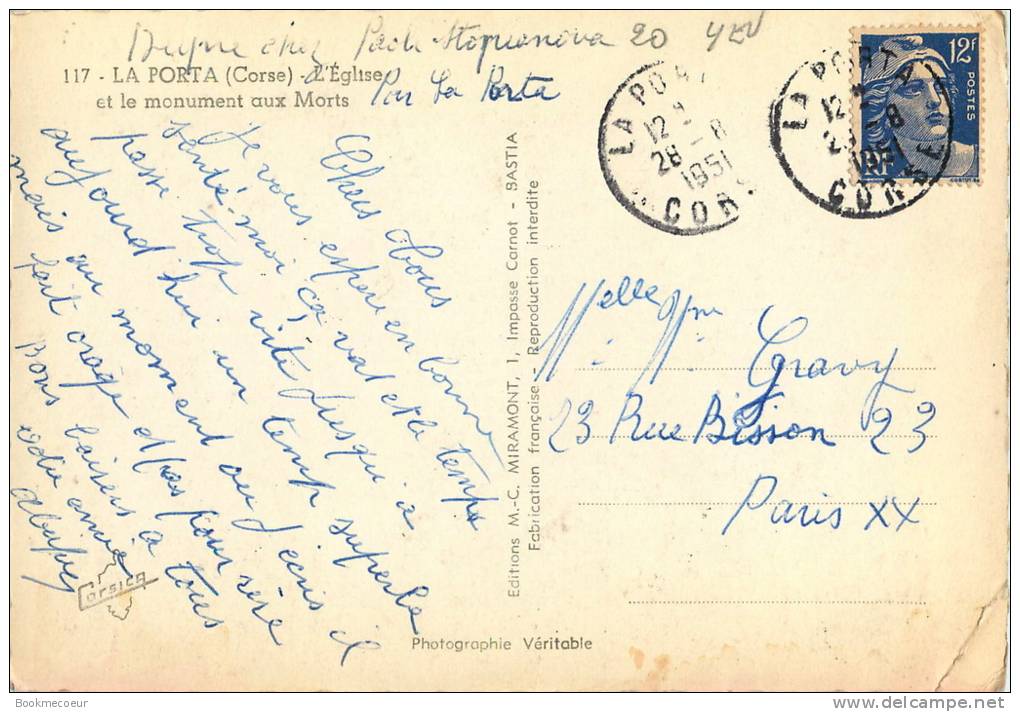 Dupre chez Paoli Stopianova 20 4EV
117 - LA PORTA (Corse) - L'Église
et le monument aux Morts
Par La Porta
Chers tous
Je vous espère en bonne
santé. moi ça va et le temps
passe trop vite jusqu'à
aujourd'hui un temp superbe
mais au moment ou j'ecris il
fait orage et pas pour rire
Bons baisers à tous
Corsica
Editions M.-C. MIRAMONT, 1, Impasse Carnot - BASTIA
Fabrication française - Reproduction interdite
Photographie Véritable
LA PORTA
12 H
28 - 8
1951
CORSE
LA PORTA
12 H
28 - 8
1951
CORSE
12F
POSTES
RF
Melle Mme
M. M. Gravy
23 Rue Bisson 23
Paris XX
Bookmecoeur
delcampe.net